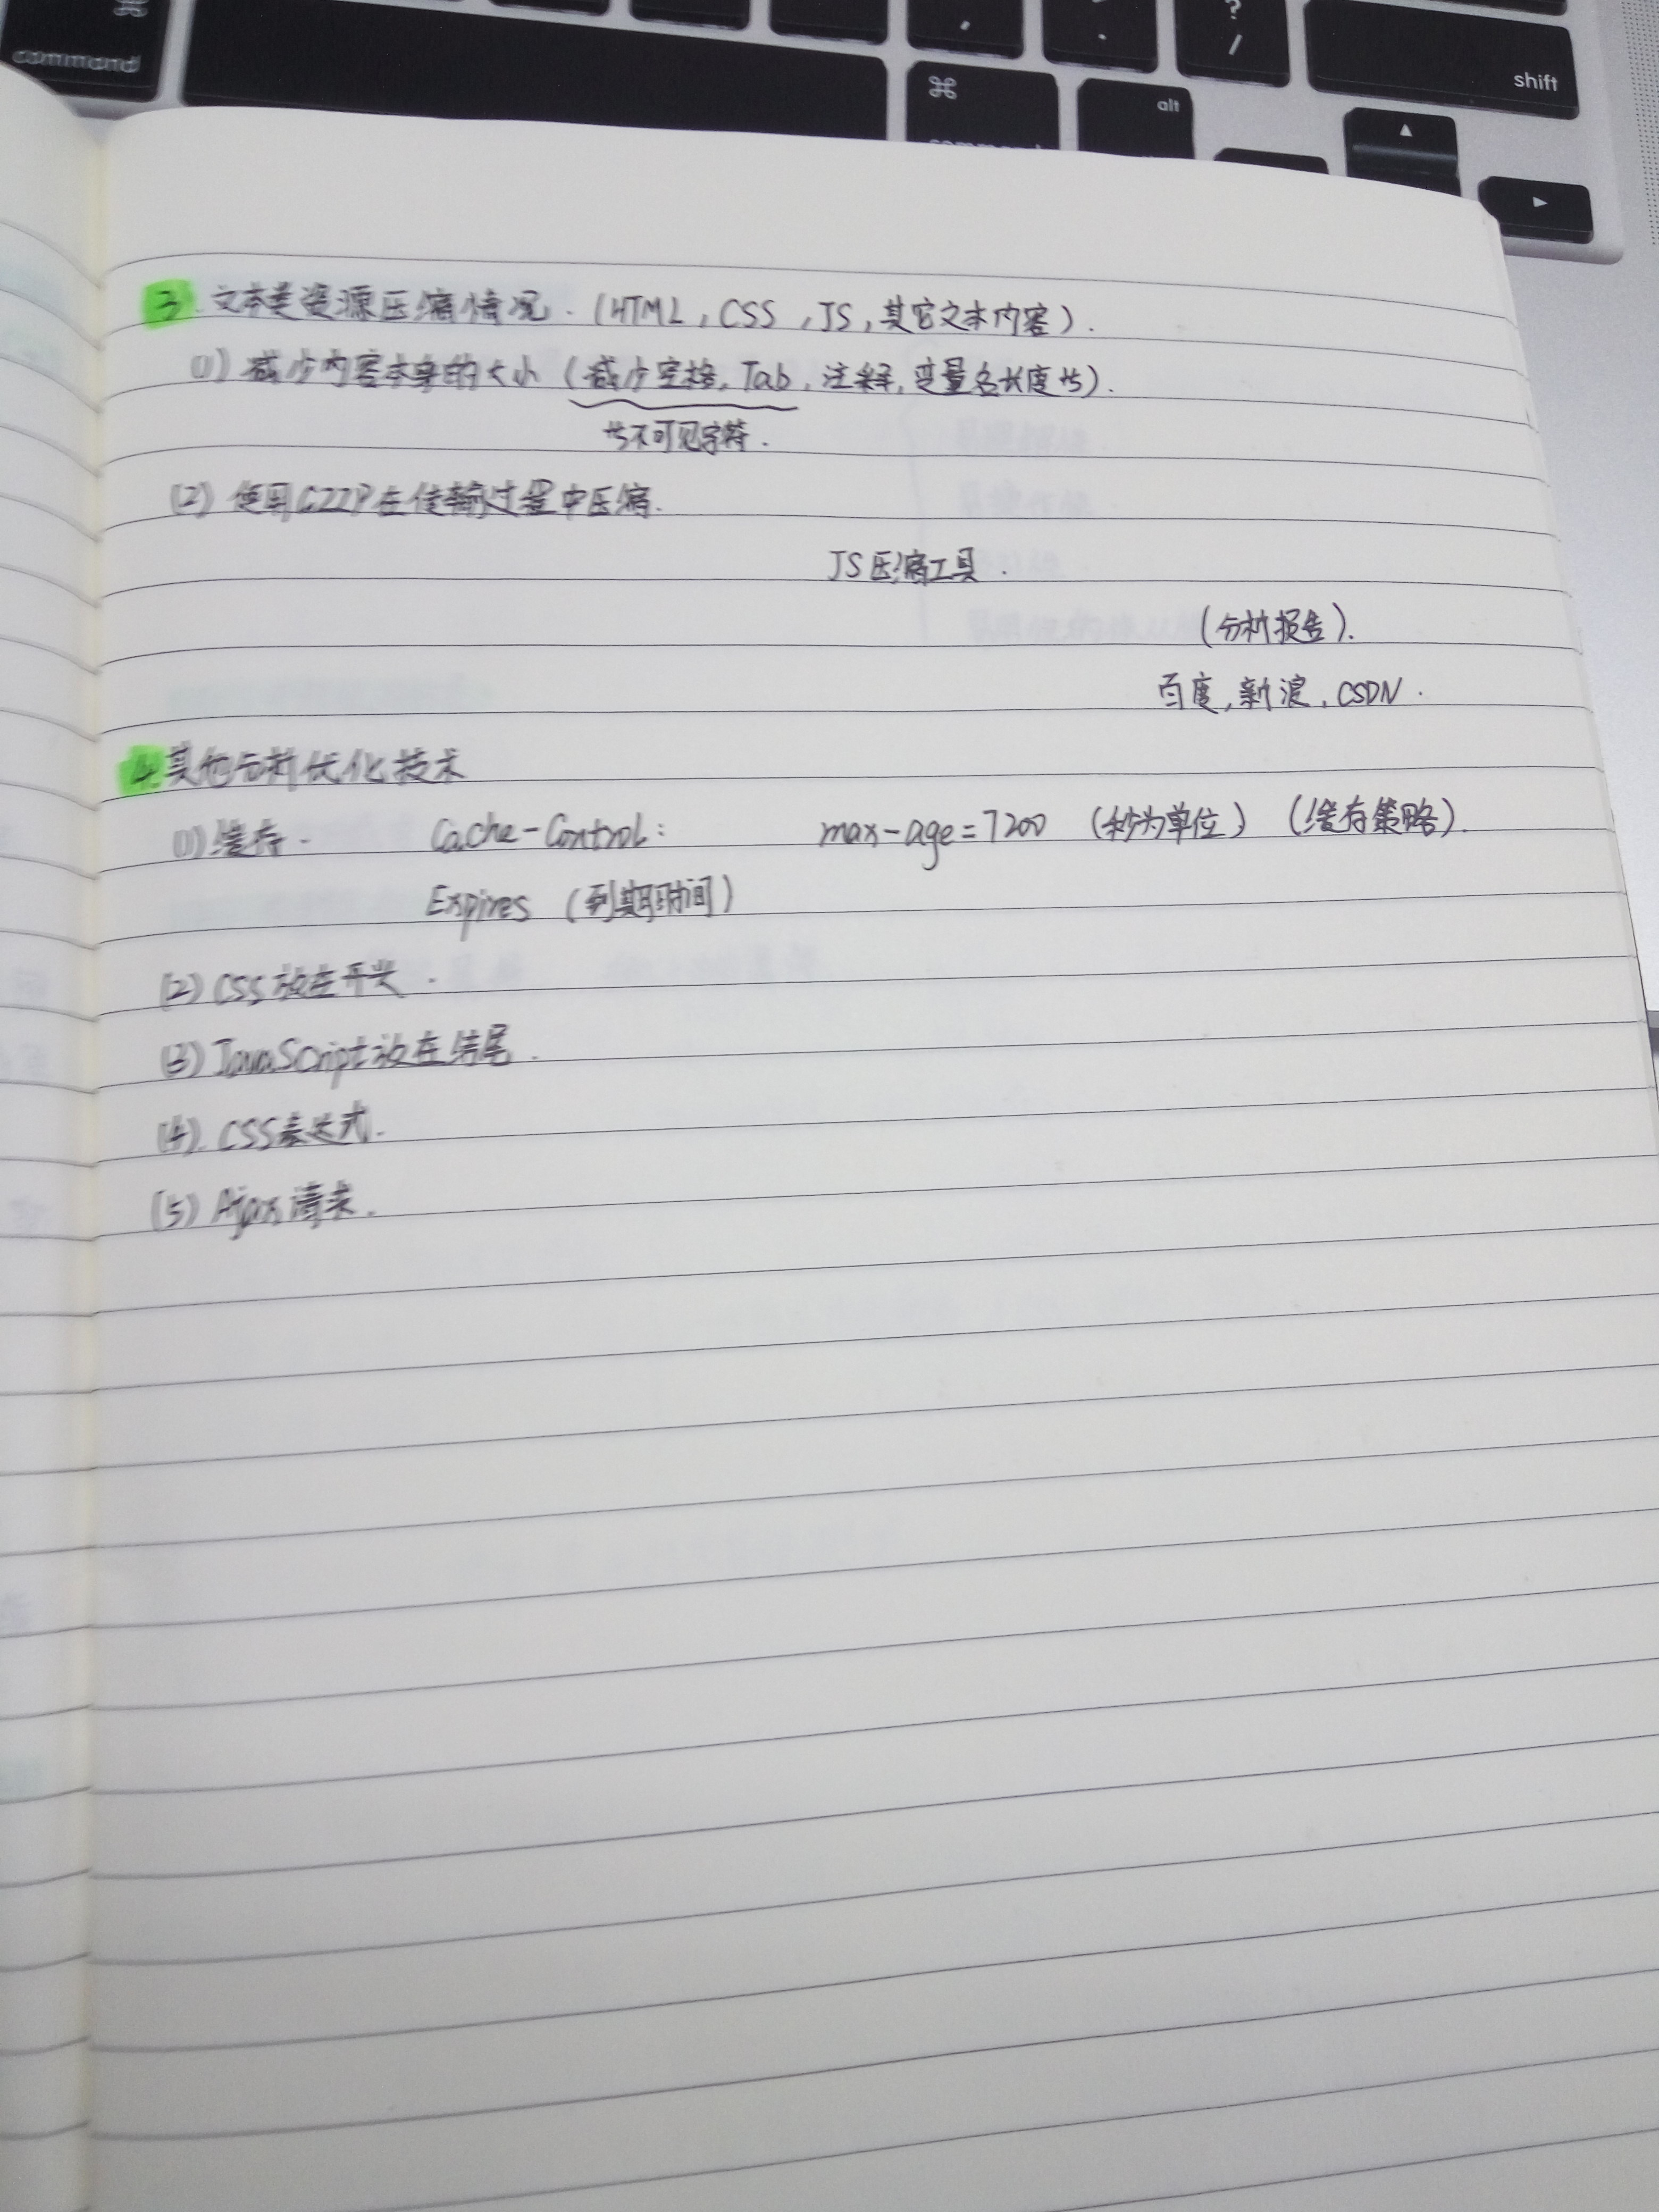 command
⌘
,
.
?
/
shift
⌘
alt
3. 文本类资源压缩情况. (HTML, CSS, JS, 其它文本内容).
(1) 减少内容本身的大小 (减少空格, Tab, 注释, 变量名长度等).
等不可见字符.
(2) 使用GZIP在传输过程中压缩.
JS压缩工具.
(分析报告).
百度, 新浪, CSDN.
4.其他前端优化技术
(1) 缓存. Cache-Control: max-age=7200 (秒为单位) (缓存策略).
Expires (到期时间)
(2) CSS放在开头.
(3) JavaScript放在结尾.
(4). CSS表达式.
(5) Ajax请求.